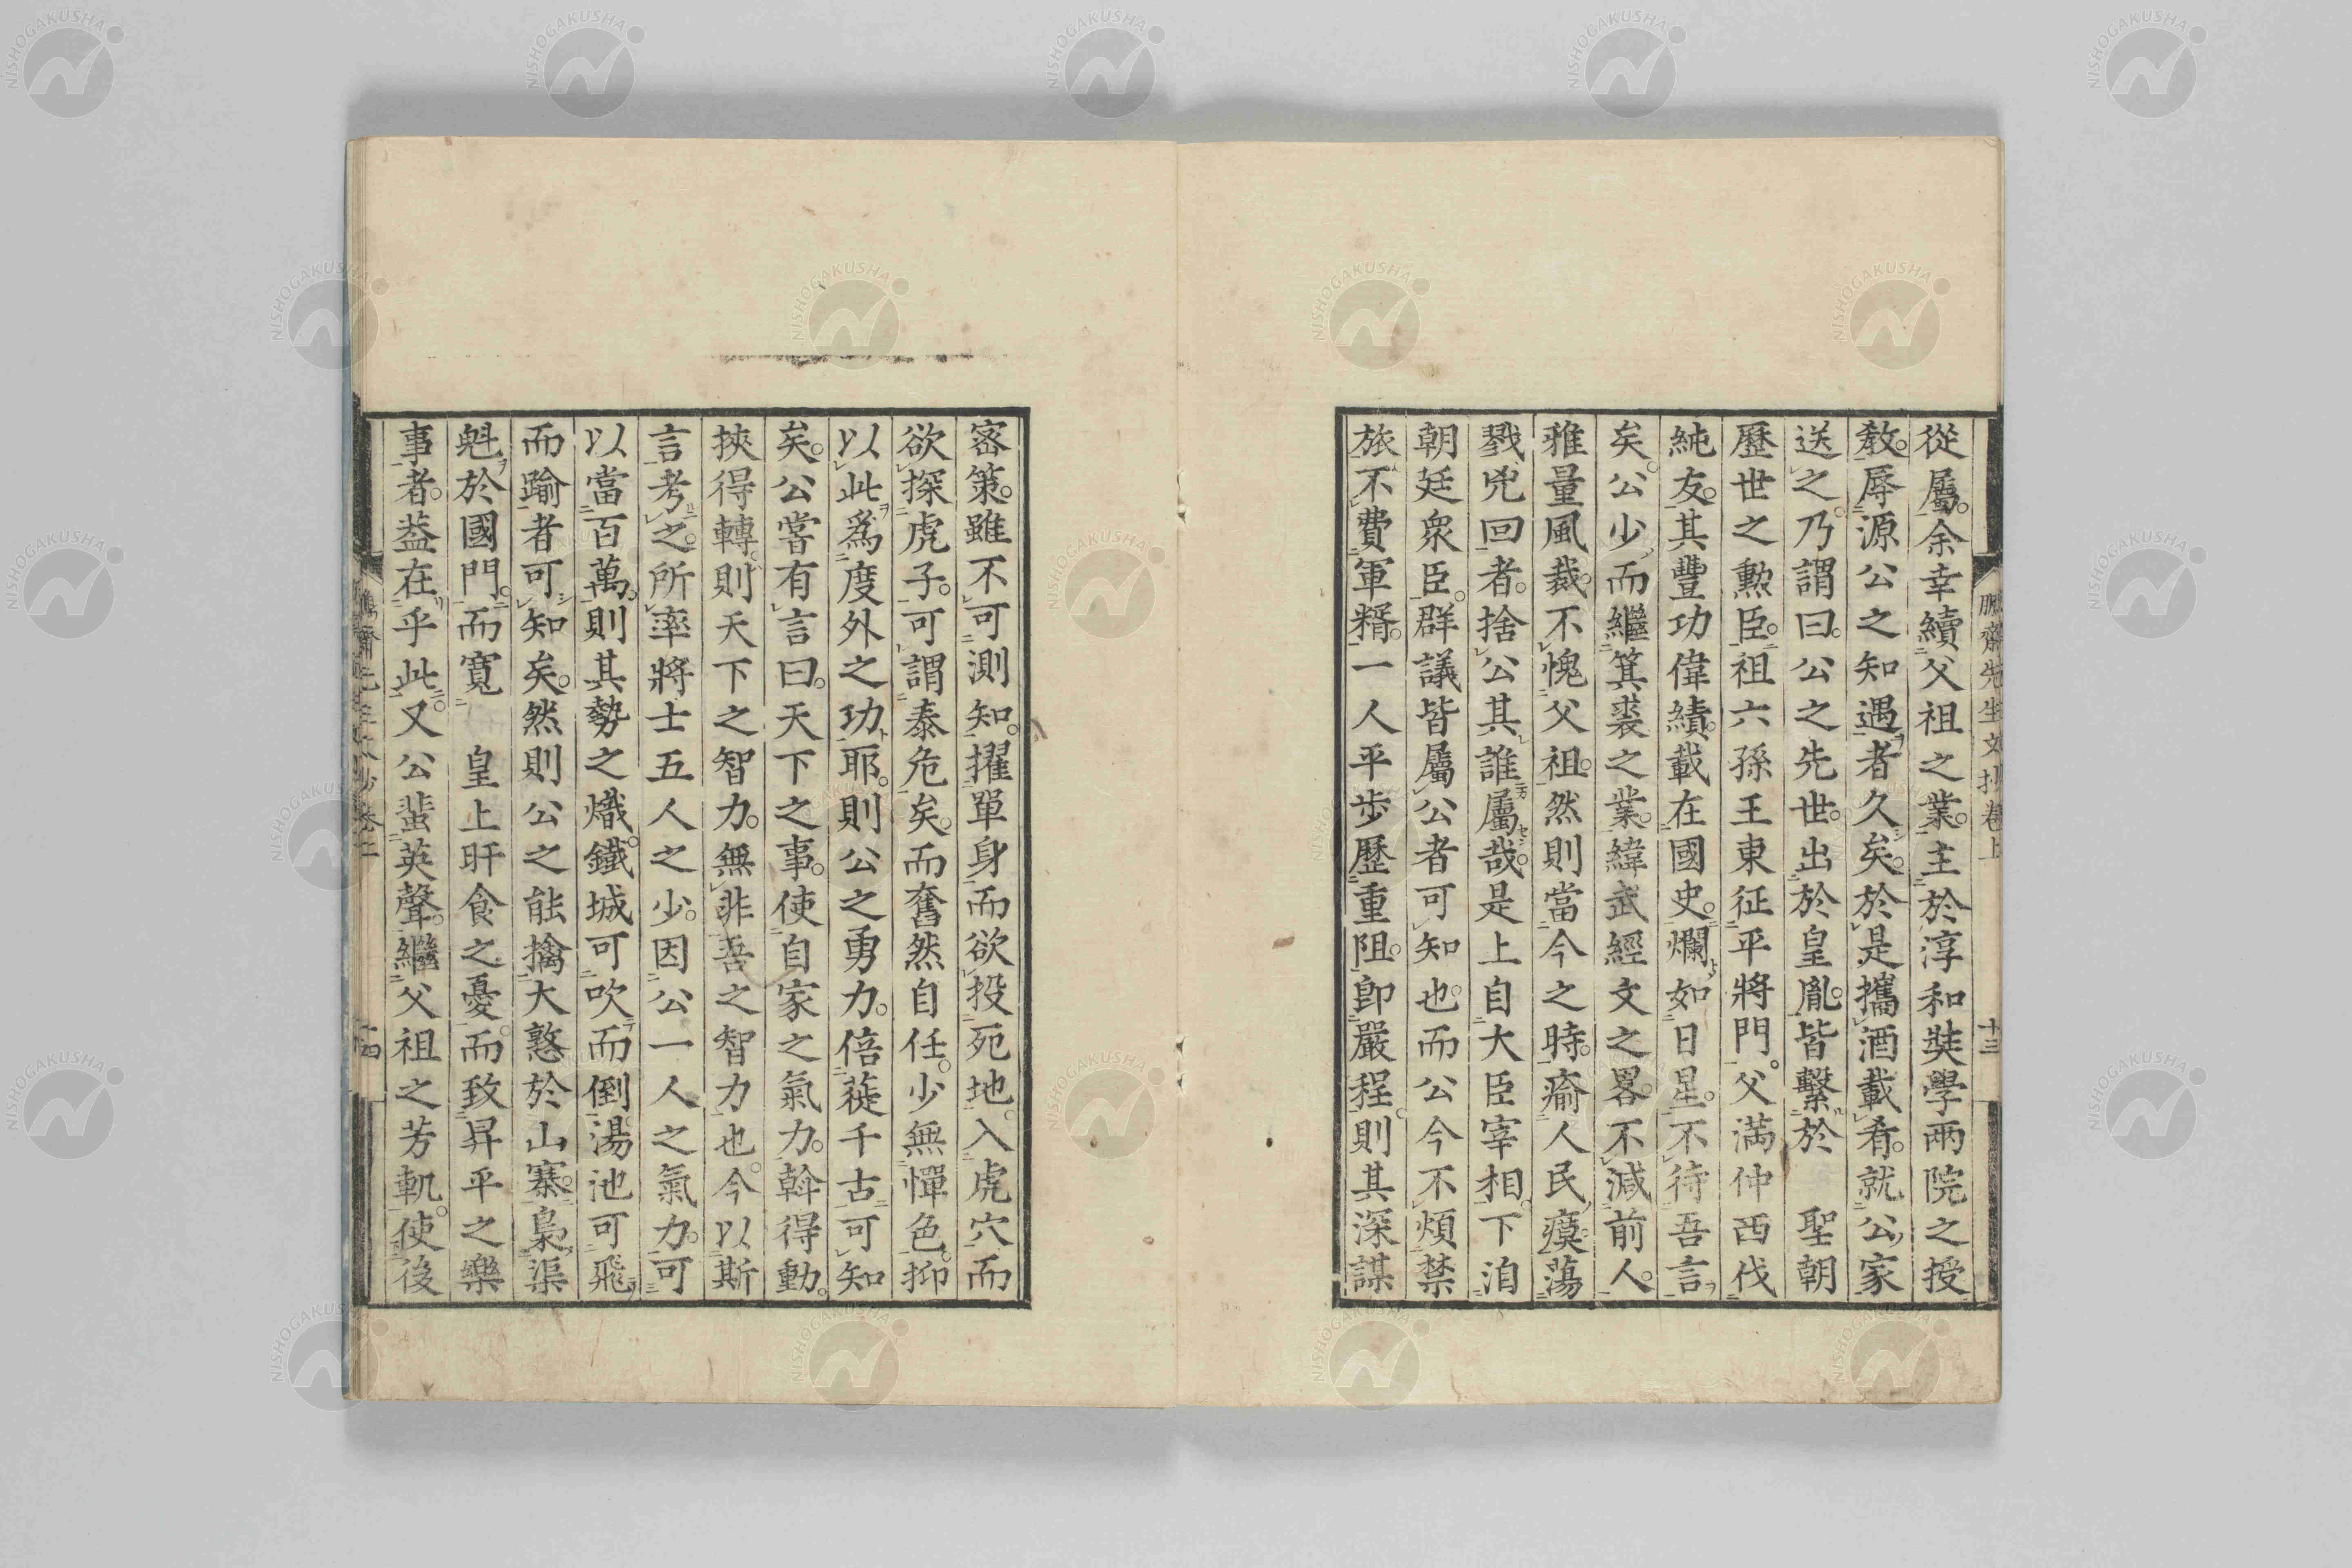 從屬。余幸續父祖之業。主於淳和奘學兩院之授
教。辱源公之知遇者久矣。於是攜酒載肴。就公家
送之。乃謂曰。公之先世。出於皇胤。皆繫於 聖朝
歷世之勲臣。祖六孫王東征平將門。父滿仲西伐
純友。其豐功偉績。載在國史。爛如日星。不待吾言
矣。公少而繼箕裘之業。緯武經文之畧。不減前人。
雅量風裁。不愧父祖。然則當今之時。瘉人民瘼。蕩
戮兇回者。捨公其誰屬哉。是上自大臣宰相。下洎
朝廷衆臣。群議皆屬公者可知也。而公今不煩禁
旅。不費軍糈。一人平步歷重阻。卽嚴程。則其深謀
密策。雖不可測知。擢單身而欲投死地。入虎穴而
欲探虎子。可謂泰危矣。而奮然自任。少無憚色。抑
以此爲度外之功耶。則公之勇力。倍蓰千古。可知
矣。公嘗有言曰。天下之事。使自家之氣力。斡得動。
挾得轉。則天下之智力。無非吾之智力也。今以斯
言考之。所率將士五人之少。因公一人之氣力。可
以當百萬。則其勢之熾。鐵城可吹而倒。湯池可飛
而踰者可知矣。然則公之能擒大憝於山寨。梟渠
魁於國門。而寬 皇上旰食之憂。而致昇平之樂
事者。益在乎此。又公蜚英聲。繼父祖之芳軌。使後
齋先生文抄卷上 十三